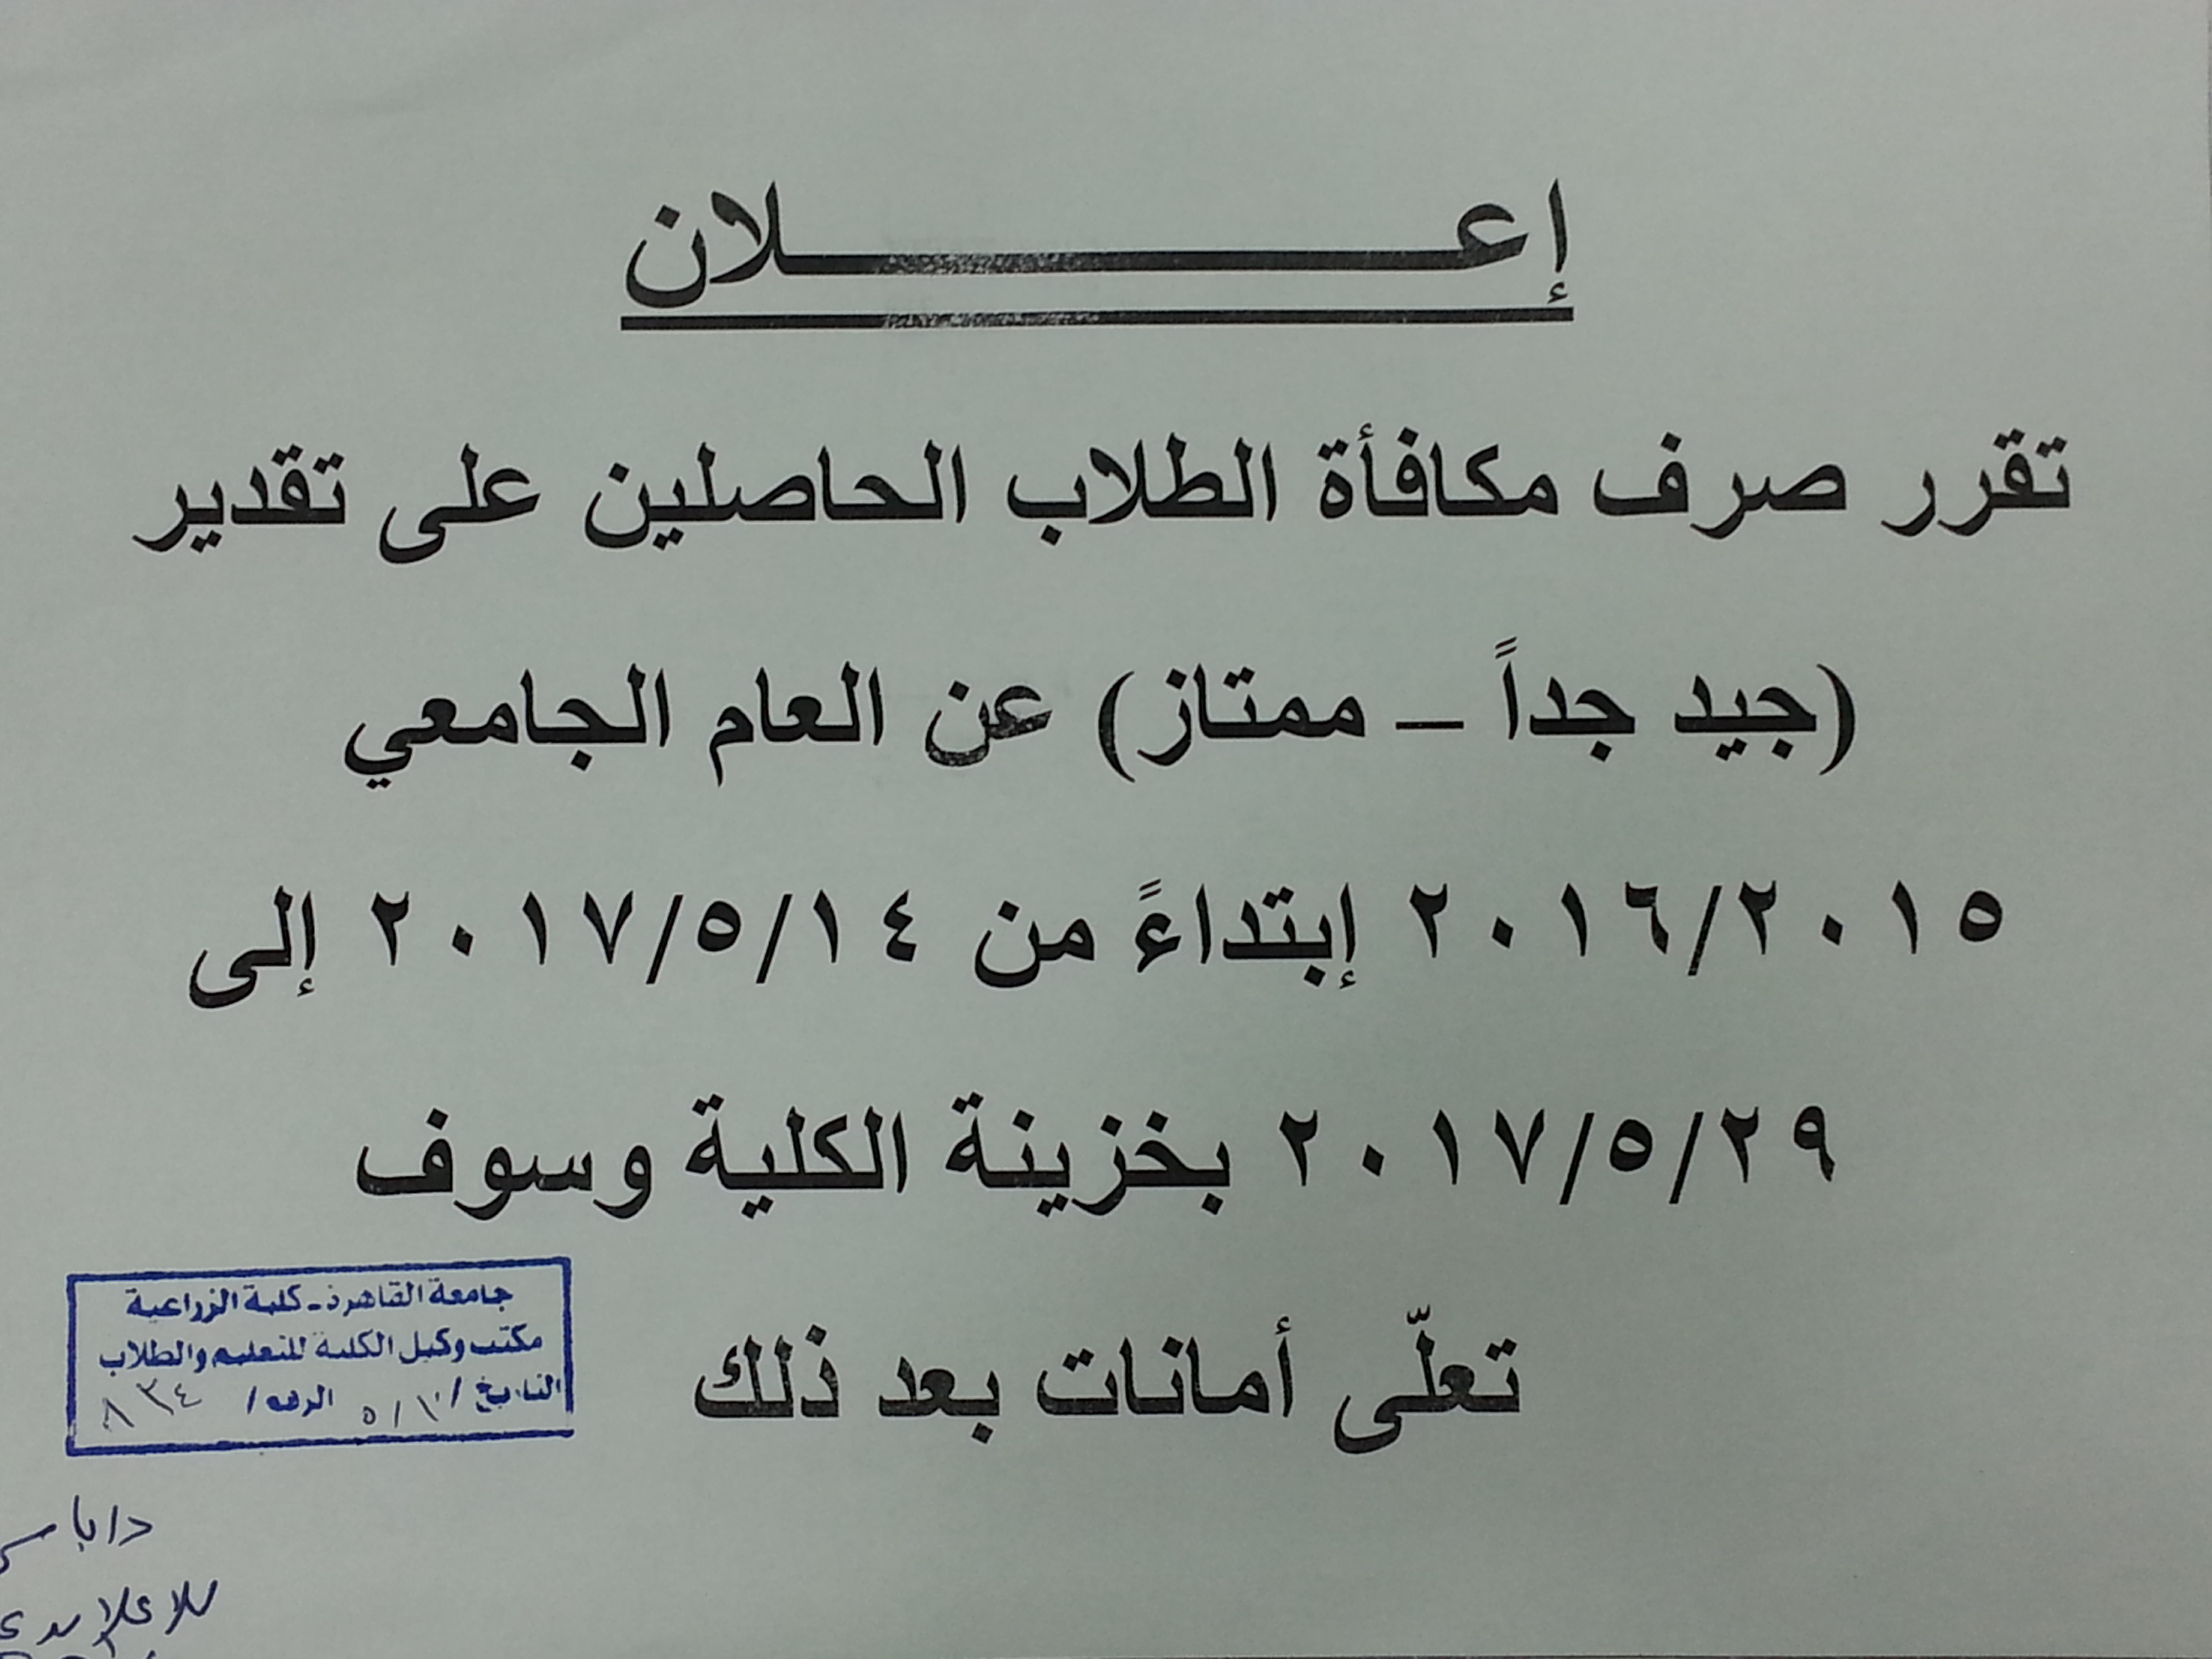 إعلان
تقرر صرف مكافأة الطلاب الحاصلين على تقدير
(جيد جداً – ممتاز) عن العام الجامعي
٢٠١٦/٢٠١٥ إبتداءً من ٢٠١٧/٥/١٤ إلى
٢٠١٧/٥/٢٩ بخزينة الكلية وسوف
تعلّى أمانات بعد ذلك
جامعة القاهرة - كلية الزراعية
مكتب وكيل الكلية للتعليم والطلاب
التاريخ / ١٠ / ٥ الرقم / ٨٣٤